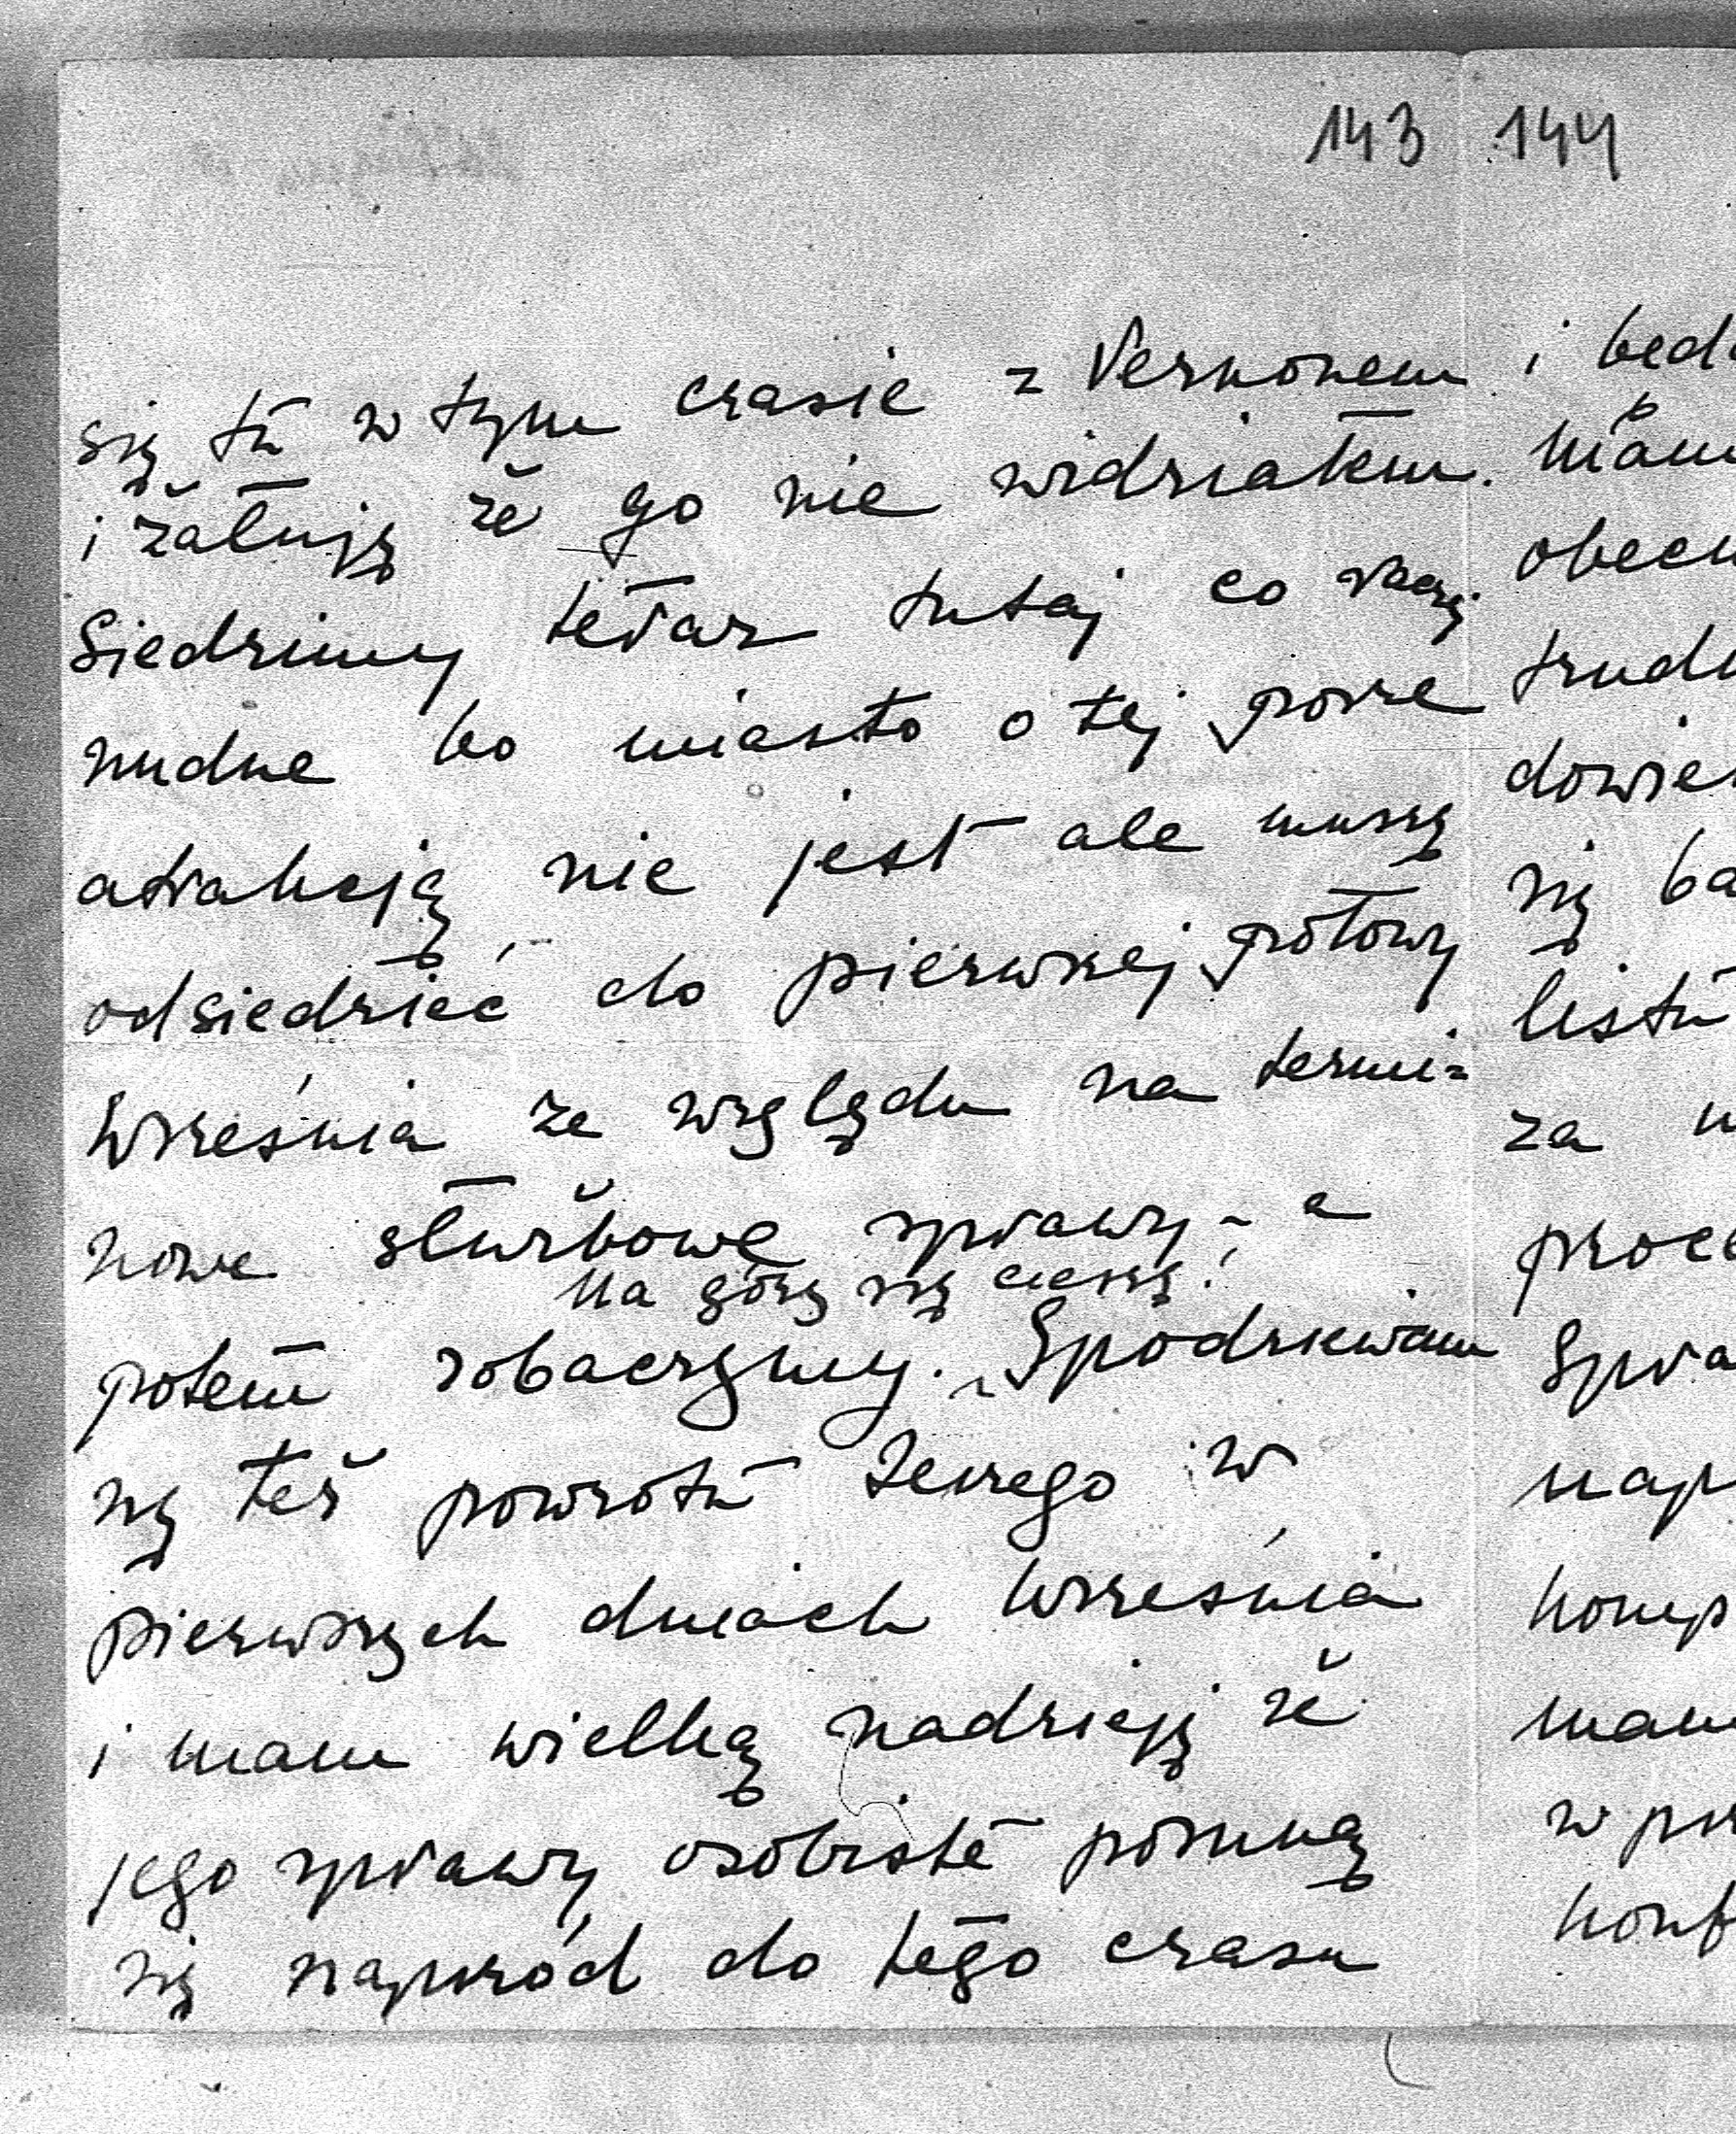 143 144
się tu w tym czasie z Vernonem
i żałuję że go nie widziałem.
Siedzimy teraz tutaj co
nudne bo miasto o tej porze
atrakcją nie jest ale muszę
odsiedzieć do pierwszej połowy
września ze względu na termi=
nowe służbowe sprawy, - a
na górę się cieszę!
potem zobaczymy. Spodziewam
się też powrotu Jerzego w
pierwszych dniach września
i mam wielką nadzieję że
jego sprawy osobiste posuną
się naprzód do tego czasu
i będ
mam
obecn
trudn
dowie
się ba
listu
za
proce
Spra
nap
komp
mam
w
konf